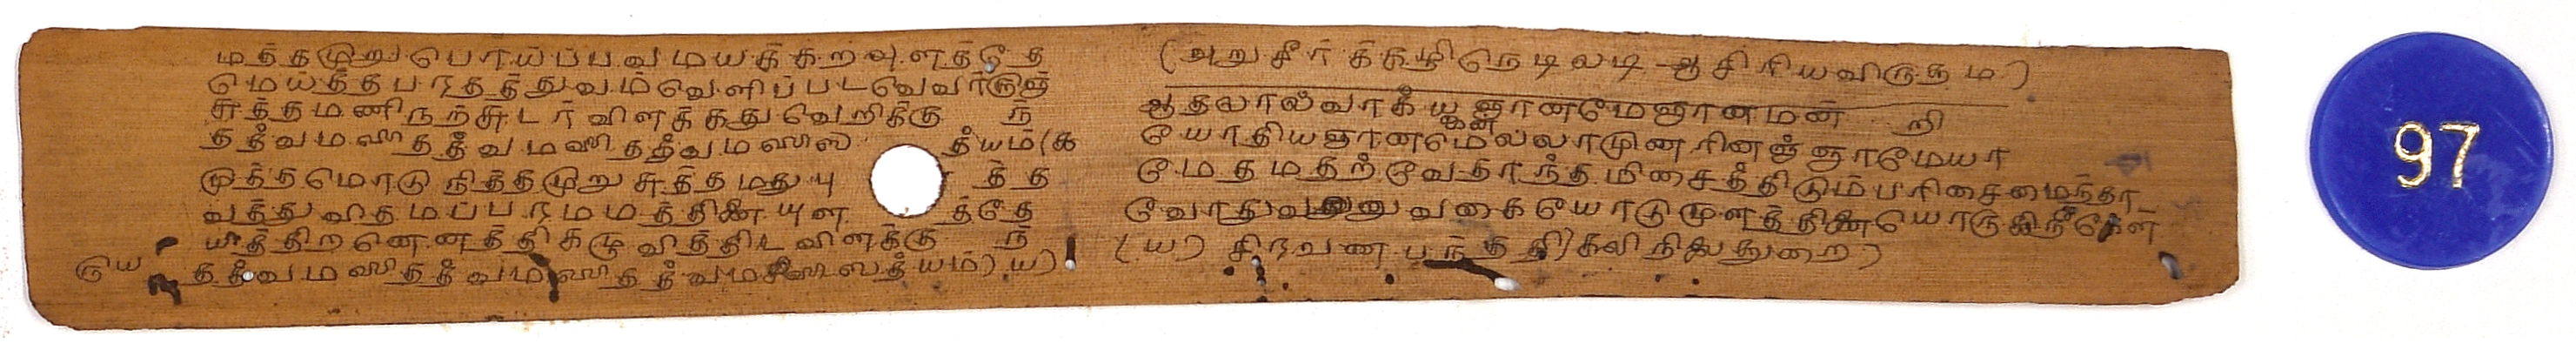 மத்தமுறு பொய்ப்பவ மயக்கற வுளத்தே
மெய்த்த பரதத்துவம் வெளிப்பட வெவர்க்குஞ்
சுத்தமணி நற்சுடர் விளக்கது வெறிக்கு ந்
தத்வமஸி தத்வமஸி தத்வமஸி ஸ த்யம் (க
முத்தமொடு நித்தமுறு சுத்தமது பு த்த
வத்துவிதமப்பரமமத்தினையுள த்தே
யத்திறனெனத்திகழுவித்திடவிளக்கு ந்
ருய தத்வமஸிதத்வமஸிதத்வமஸிஸத்யம்) ய)
(அறுசீர்க்கழிநெடிலடி ஆசிரியவிருதம)
ஆதலால் வாக்ய ஞானமேஞானமன் றி
யோதியஞானமெல்லாமுணரினஞ்ஞாமேயா
மேதமதற் வேதாந்த மிசைத்திடும் பரிசை மைந்தா
வோதுவ வகையோடுமுளத்தினை
(ய) சிரவண பந்ததி) கலிநிலைதுறை)
97